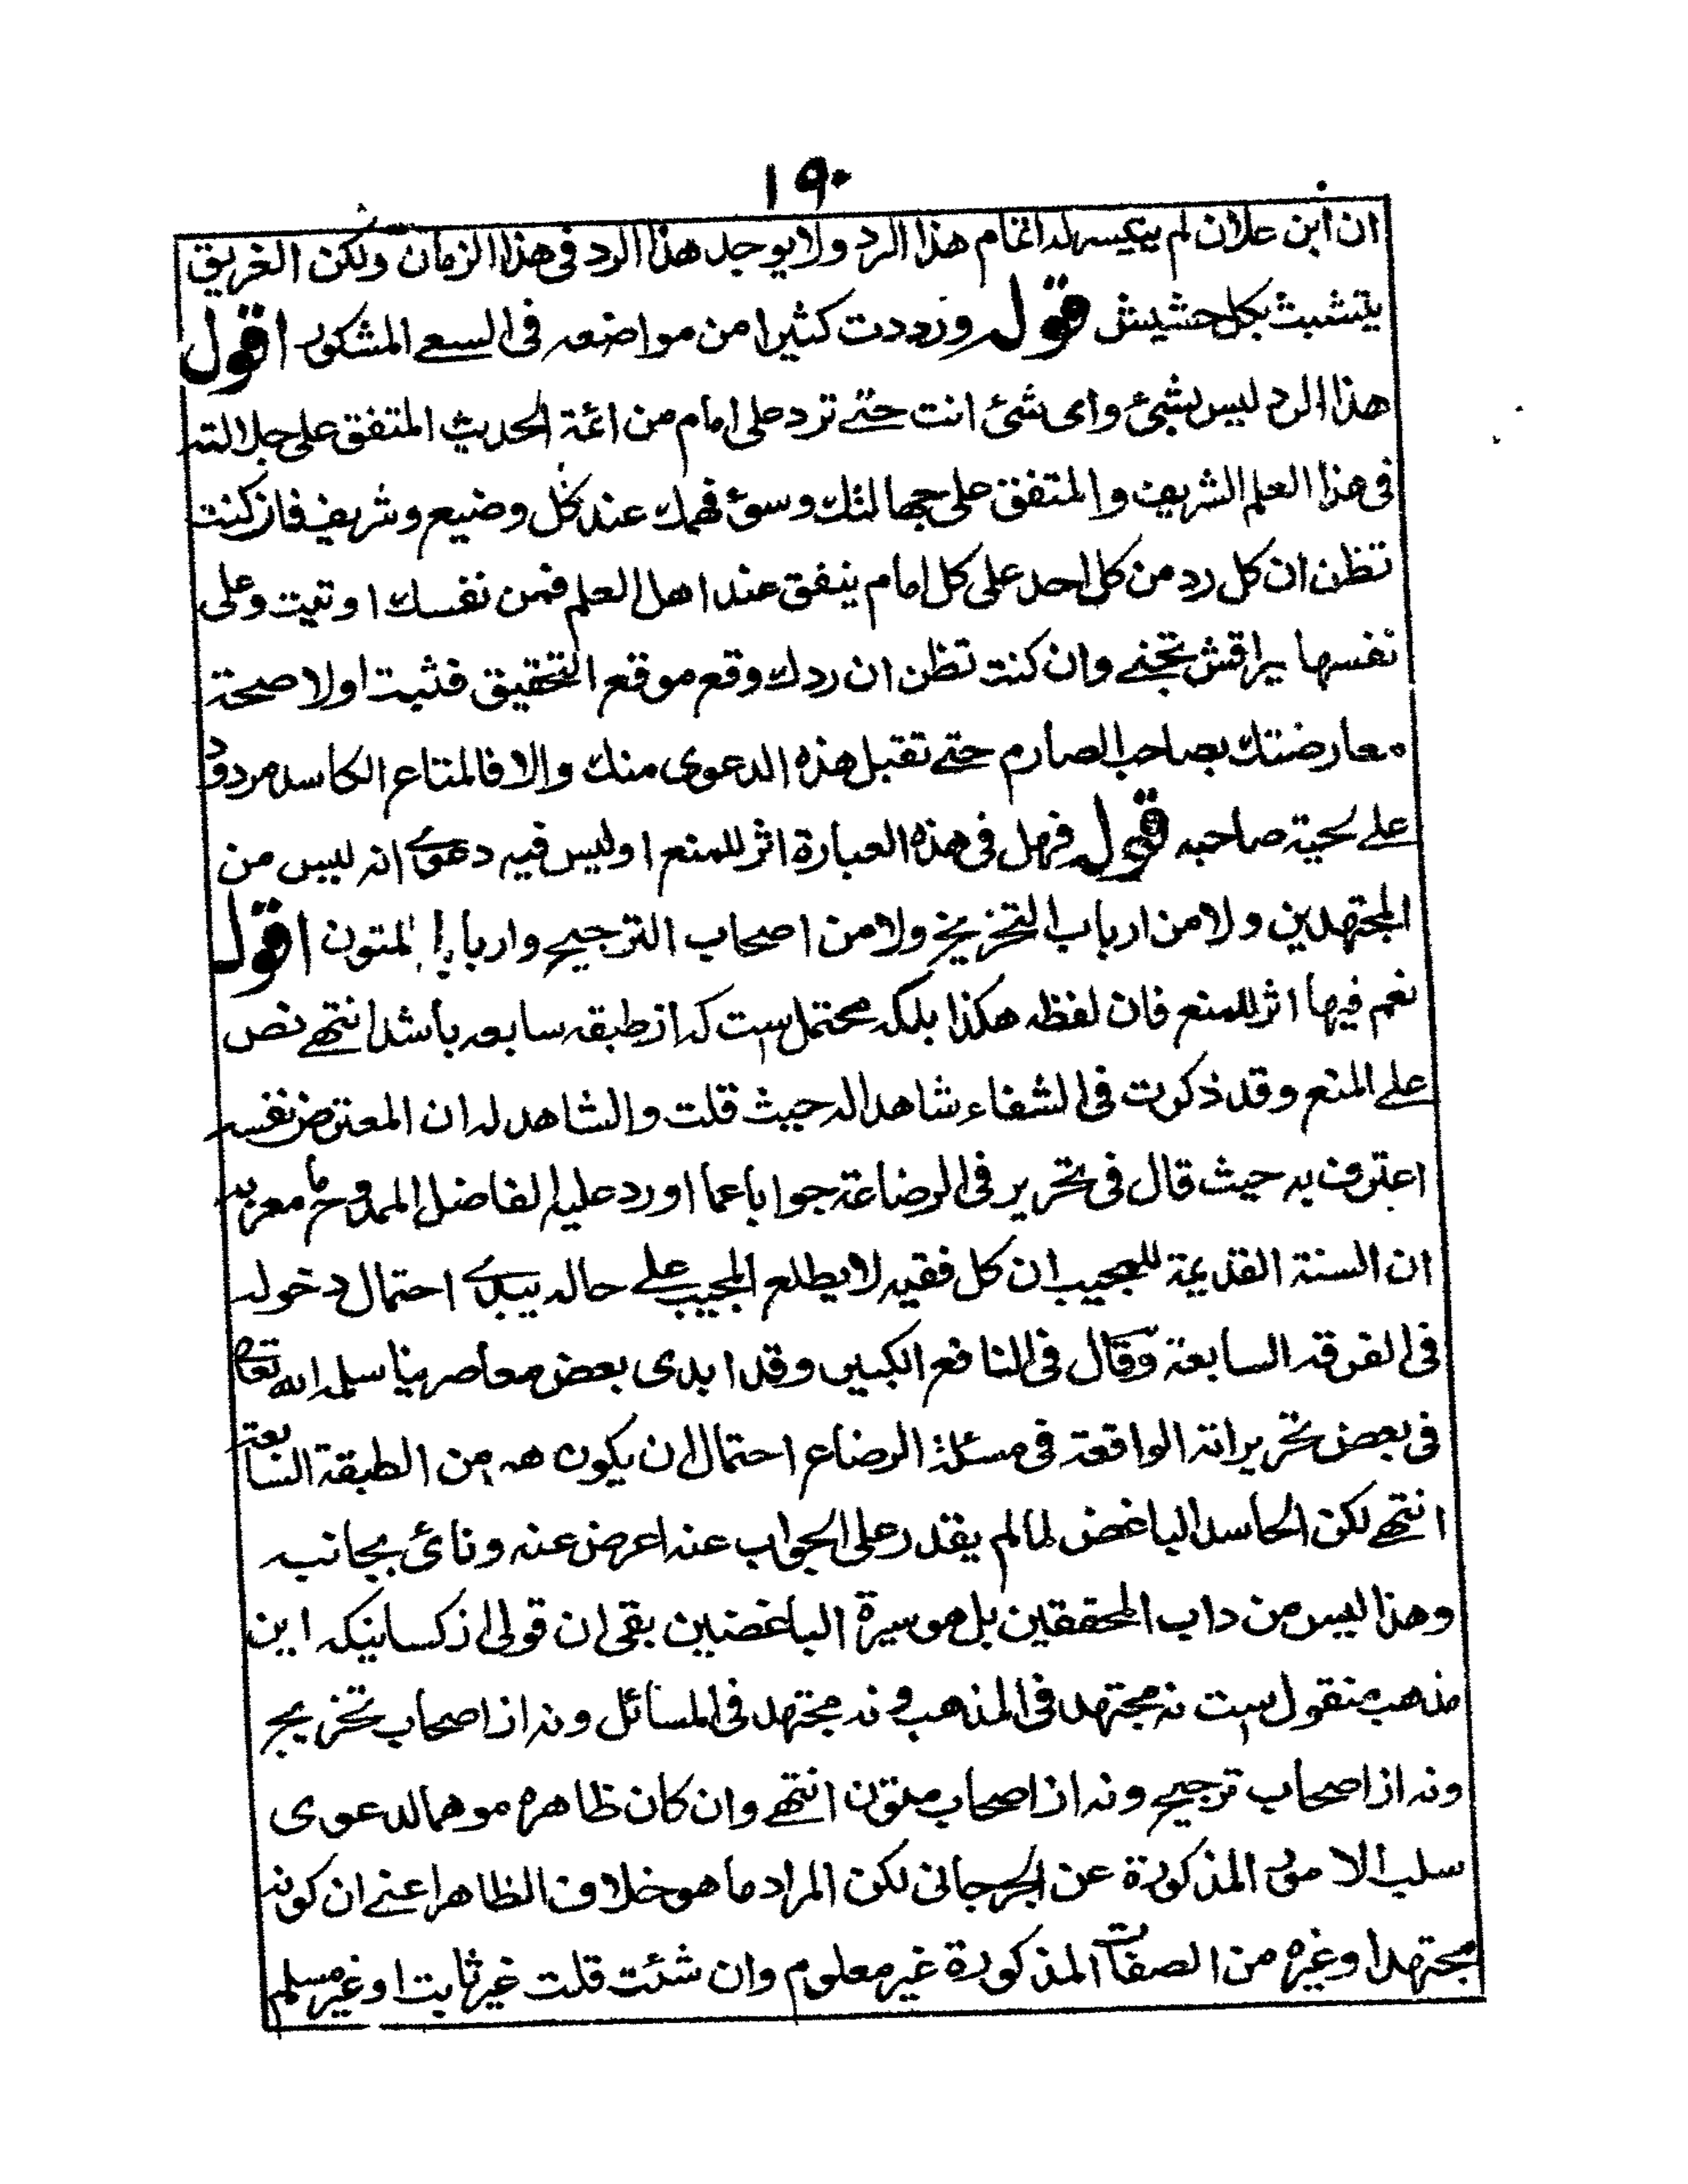 ١٩٠
ان ابن علان لم يتيسر له اتمام هذا الرد ولا يوجد هذا الرد فى هذا الزمان ولكن الغريق
يتشبث بكل حشيش قوله ورددت كثيرا من مواضعه فى السعى المشكور اقول
هذا الرد ليس بشئ واى شئ انت حتى ترد على امام من ائمة الحديث المتفق على جلالته
فى هذا العلم الشريف والمتفق على جهالتك وسوء فهمك عند كل وضيع وشريف فان كنت
تظن ان كل رد من كل احد على كل امام ينفق عند اهل العلم فمن نفسك اوتيت وعلى
نفسها براقش تجنى وان كنت تظن ان ردك وقع موقع التحقيق فثبت اولا صحة
معارضتك بصاحب الصارم حتى تقبل هذه الدعوى منك والا فالمتاع الكاسد مردود
على لحية صاحبه قوله فهل فى هذه العبارة اثر للمنع اوليس فيه دعوى انه ليس من
المجتهدين ولا من ارباب التخريج ولا من اصحاب الترجيح وارباب المتون اقول
نعم فيها اثر للمنع فان لفظه هكذا بلكه محتمل ست كه از طبقه سابعه باشد انتهى نص
على المنع وقد ذكرت فى الشفاء شاهدا له حيث قلت والشاهد له ان المعترض نفسه
اعترف به حيث قال فى تحرير فى الرضاعة جوابا عما اورد عليه الفاضل الممدوح ما معربه
ان السنة القديمة للمجيب ان كل فقيه لا يطلع المجيب على حاله يبدى احتمال دخوله
فى الفرقة السابعة وقال فى النافع الكبير وقد ابدى بعض معاصرينا سلمه الله تعالى
فى بعض تحريراته الواقعة فى مسئلة الرضاع احتمال ان يكون هو من الطبقة السابعة
انتهى لكن الحاسد الباغض لما لم يقدر على الجواب عنه اعرض عنه ونائ بجانبه
وهذا ليس من داب المحققين بل هو سيرة الباغضين بقى ان قولى از كسانيكه اين
مذهب منقول ست نه مجتهد فى المذهب ونه مجتهد فى المسائل ونه از اصحاب تخريج
ونه از اصحاب ترجيح ونه از اصحاب متون انتهى وان كان ظاهره موهما لدعوى
سلب الامور المذكورة عن الجرجانى لكن المراد ما هو خلاف الظاهر اعنى ان كونه
مجتهدا وغيره من الصفات المذكورة غير معلوم وان شئت قلت غير ثابت او غير مسلم